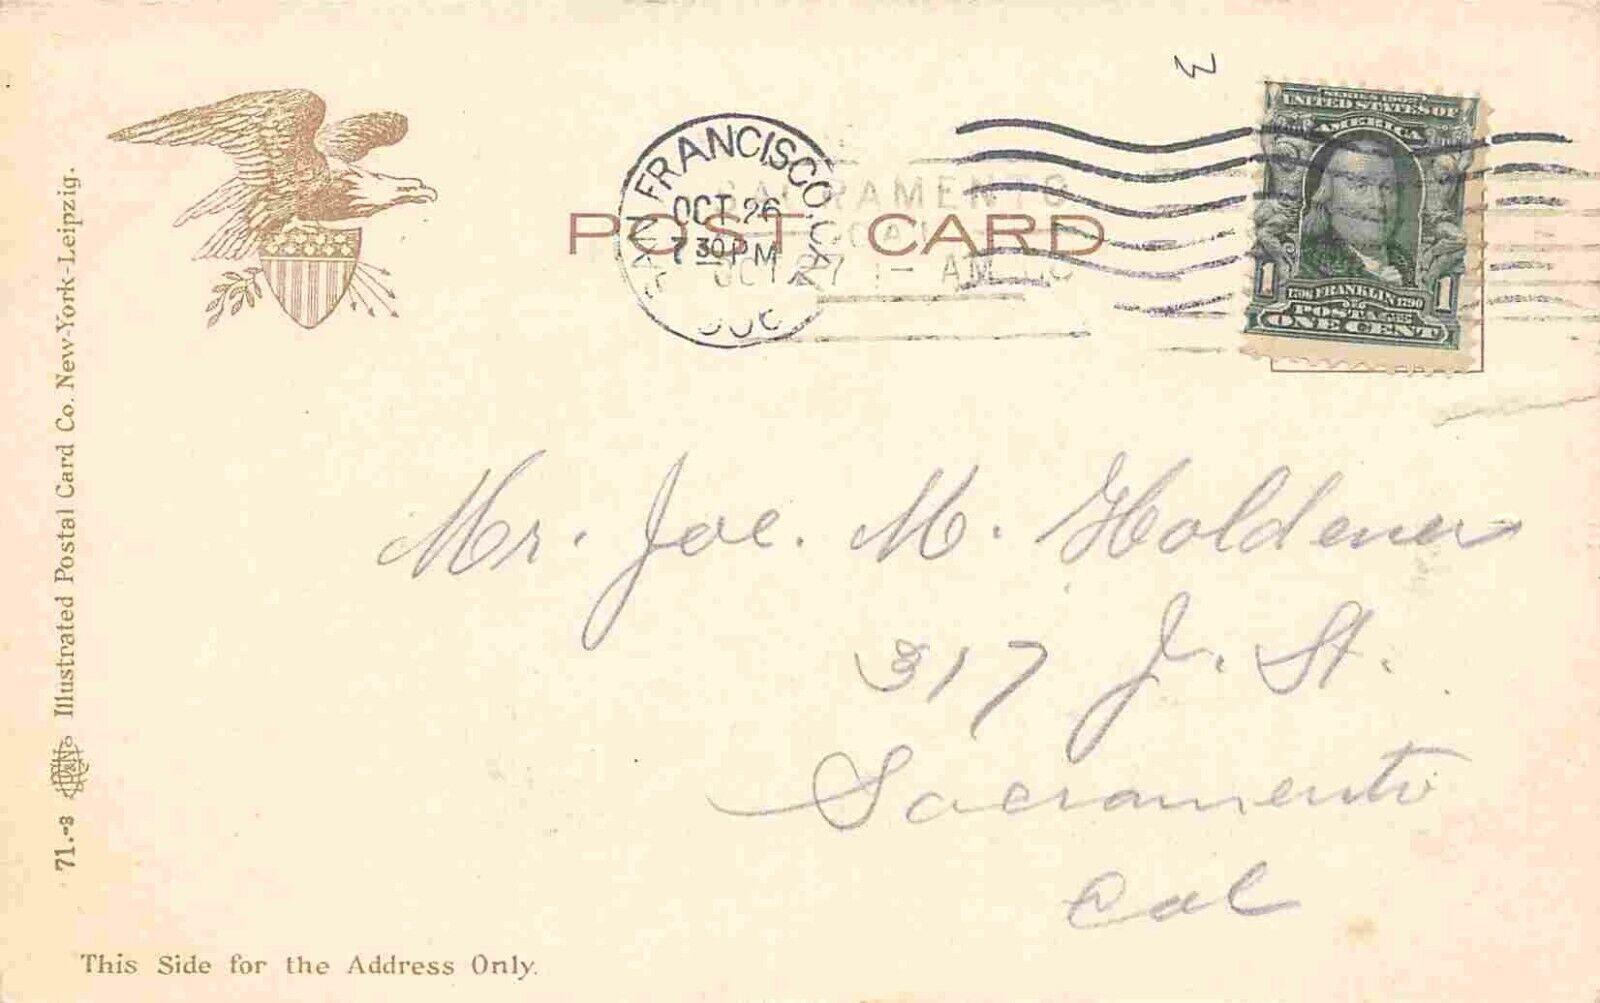 3
SAN FRANCISCO, CAL.
OCT 26
7 30 PM
SACRAMENTO
CAL
OCT 27 1- AM
POST CARD
SERIES 1902
UNITED STATES OF
AMERICA
1 1706 FRANKLIN 1790 1
POSTAGE
ONE CENT
Mr. Joe. M. Holdener
317 J. St.
Sacramento
Cal
71.-8 Illustrated Postal Card Co. New-York-Leipzig.
This Side for the Address Only.